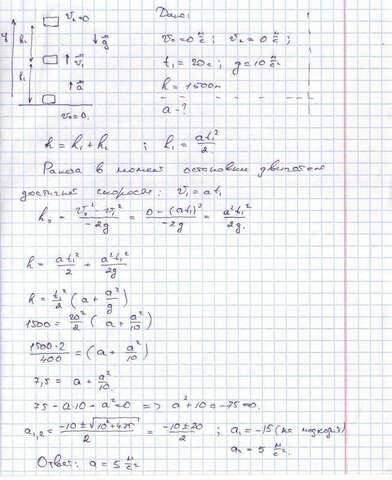 Дано:
v₂=0
v₀=0 м/с ; v₂=0 м/с ;
y h₂ ↓g⃗
t₁=20с ; g=10 м/с²
↑v⃗₁
h=1500м
h₁ ↑a⃗
a-?
v₀=0
h = h₁ + h₂ ; h₁ = at₁²/2
Ракета в момент остановки двигателя
достигнет скорости : v₁ = at₁
h₂ = (v₂² - v₁²)/(-2g) = (0-(at₁)²)/(-2g) = a²t₁²/2g.
h = at₁²/2 + a²t₁²/2g
h = t₁²/2 (a + a²/g)
1500 = 20²/2 (a + a²/10)
1500·2/400 = (a + a²/10)
7,5 = a + a²/10.
75 - a·10 - a² = 0 => a² + 10a - 75 = 0.
a₁,₂ = (-10 ± √(10² + 4·75))/2 = (-10 ± 20)/2 ; a₁ = -15 (не подход.)
a₂ = 5 м/с².
Ответ: a = 5 м/с²